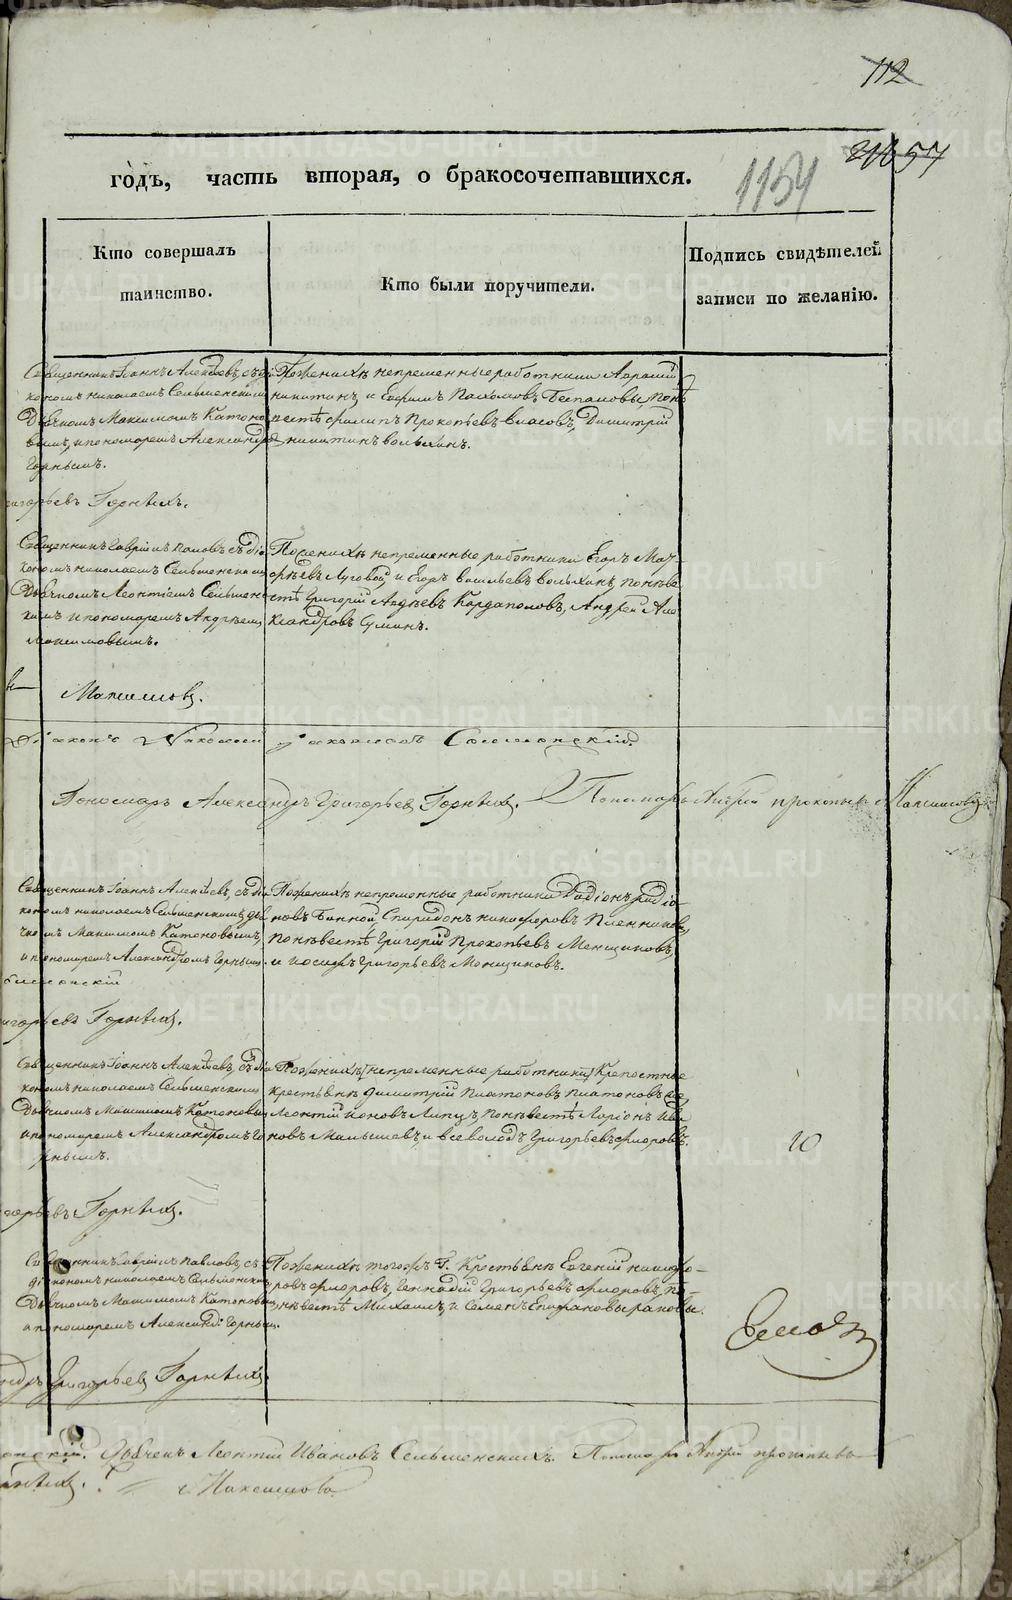 112
1154
57
го̀дъ, часть вторая, о бракосочетавшихся.
Кто совершалъ таинство.
Кто были поручители.
Подпись свидѣтелей записи по желанію.
Священникъ Іоаннъ Алексѣевъ, съ діа
кономъ николаемъ Сельменскимъ
Дьячкомъ Максимомъ Катоно
вымъ, и пономаремъ Александро
Горныхъ.
По женихѣ непременные работники
никитинъ, и Ефимъ Пахомовъ Беспаловы, по не
вестѣ филипъ Прокопьевъ власовъ, Димитрій
никитинъ волыхинъ.
григорьевъ Горныхъ.
Священникъ Гавріилъ Павловъ съ діа
кономъ николаемъ Сельменскимъ
Дьячкомъ Леонтіемъ Сельменс
кимъ и пономаремъ Андреемъ
Максимовымъ.
По женихѣ непременные работники Егоръ Мат
фѣевъ Луговой, и Егоръ васильевъ волыхинъ, по неве
стѣ Григорій Авдѣевъ Кардаполовъ, Андрей Але
ксандровъ Суминъ.
Максимовъ.
Діаконъ Николай
Пономарь Александръ Григорьевъ Горныхъ. Пономарь Андрей прокопьевъ Максимовъ
Священникъ Іоаннъ Алексѣевъ, съ діа
кономъ николаемъ Сельменскимъ, дья
чкомъ Максимомъ Катоновымъ,
и пономаремъ Александромъ Горныхъ
По женихѣ непременные работники Родіонъ родіо
новъ Банной, Спиридонъ никифоровъ Пленниковъ,
по невестѣ Григорій Прокопьевъ Менщиковъ,
и иосифъ Григорьевъ Менщиковъ.
григорьевъ Горныхъ.
Священникъ Іоаннъ Алексѣевъ, съ діа
кономъ николаемъ Сельменскимъ
Дьячкомъ Максимомъ Катоновым
и пономаремъ Александромъ Го
рныхъ.
По женихѣ [непременные работники] Крепостные
крестьяне Димитрій Платоновъ
Леонтій ионовъ по невестѣ Ларіонъ Ива
новъ Малышевъ, и всеволодъ Григорьевъ флоровъ.
10
горьевъ Горныхъ.
Священникъ Гавріилъ Павловъ, съ
діакономъ николаемъ Сельменским
Дьячкомъ Максимомъ Катоновым
и пономаремъ Александ: Горныхъ.
По женихѣ тогоже Г. Крестьяне Евгеній никифо
ровъ флоровъ, Геннадій Григорьевъ флоровъ, по
невестѣ Михаилъ, и Семенъ Епифановы раковы.
ндръ Григорьевъ Горныхъ.
Дьячекъ Леонтій Ивановъ Сельменскихъ. Пономарь Андрей прокопьевъ
Максимовъ
METRIKI.GASO-URAL.RU